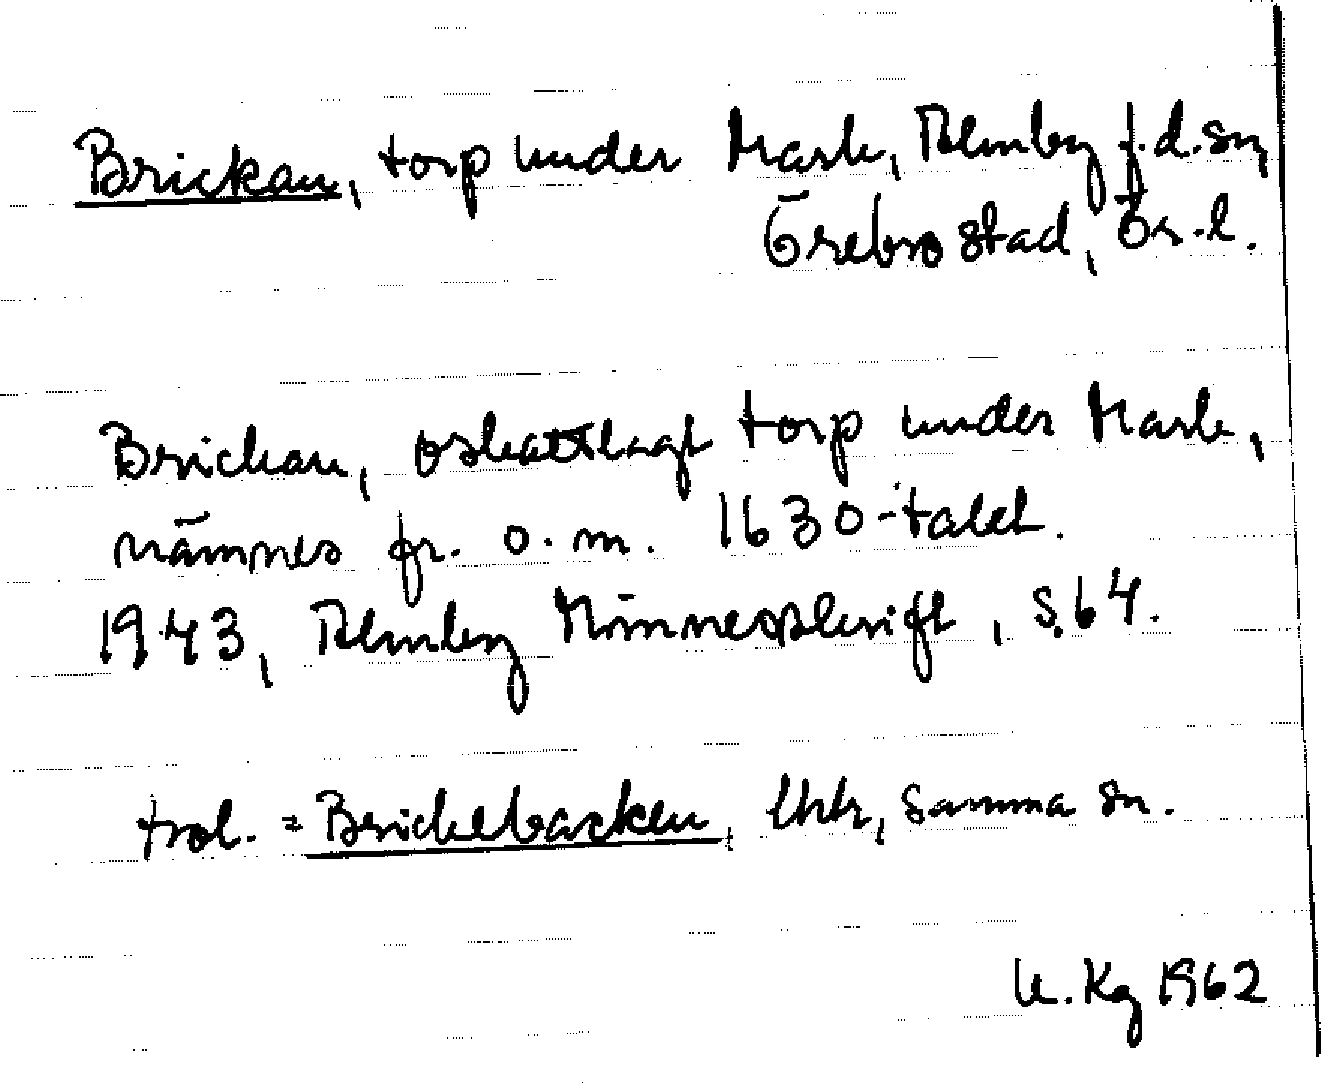 Brickan, torp under Mark, Almby f.d. sn,
Örebro stad, Ör.l.
Brickan, oskattlagt torp under Mark,
nämnes fr. o. m. 1630-talet.
1943, Almby Minnesskrift, s. 64.
trol. = Brickebacken, lhh, samma sn.
U. Kg 1962